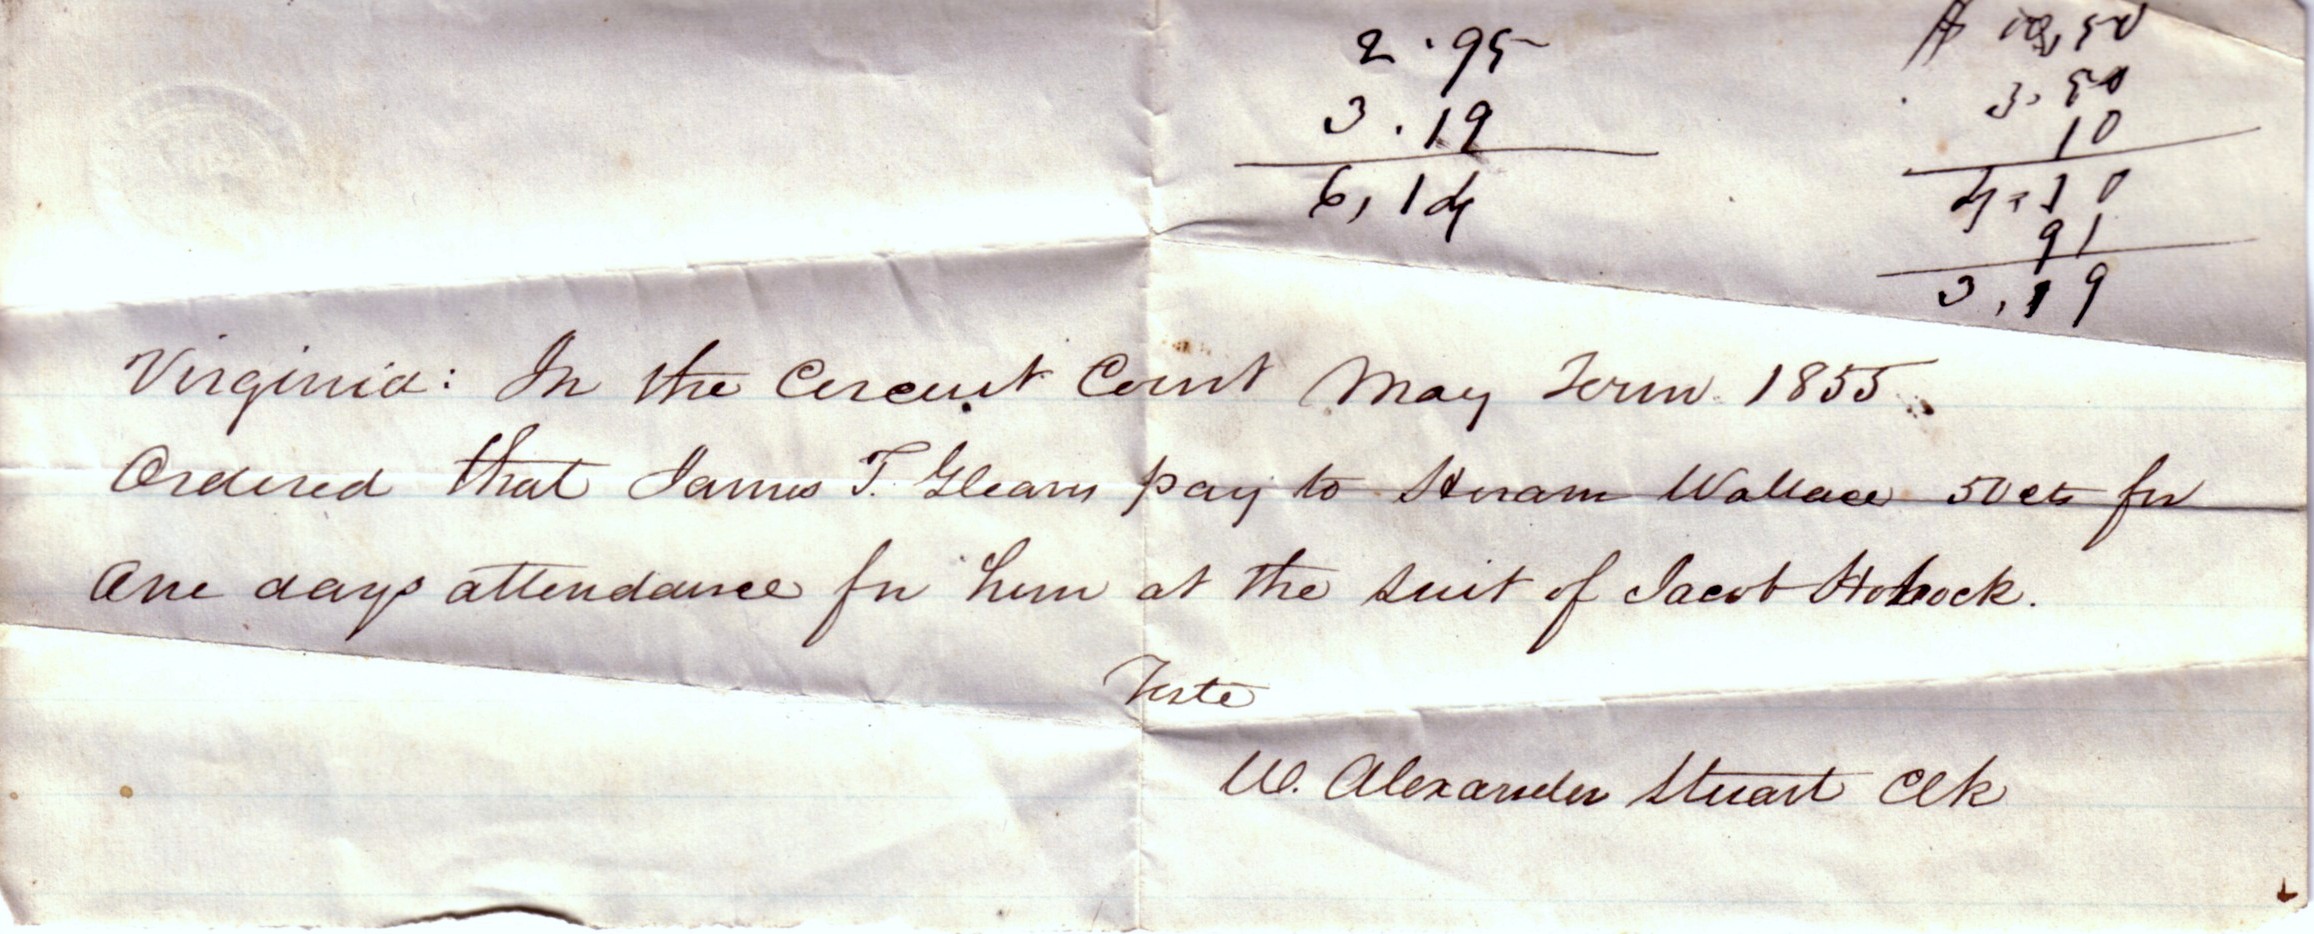 2.95
3.19
6,14
3.50
10
4.10
91
3,19
Virginia: In the Circuit Court May Term 1855
Ordered that James T. Gleaves pay to Hiram Wallace 50 cts for
One days attendance for him at the suit of Jacob Hobock.
Teste
W. Alexander Stuart Clk